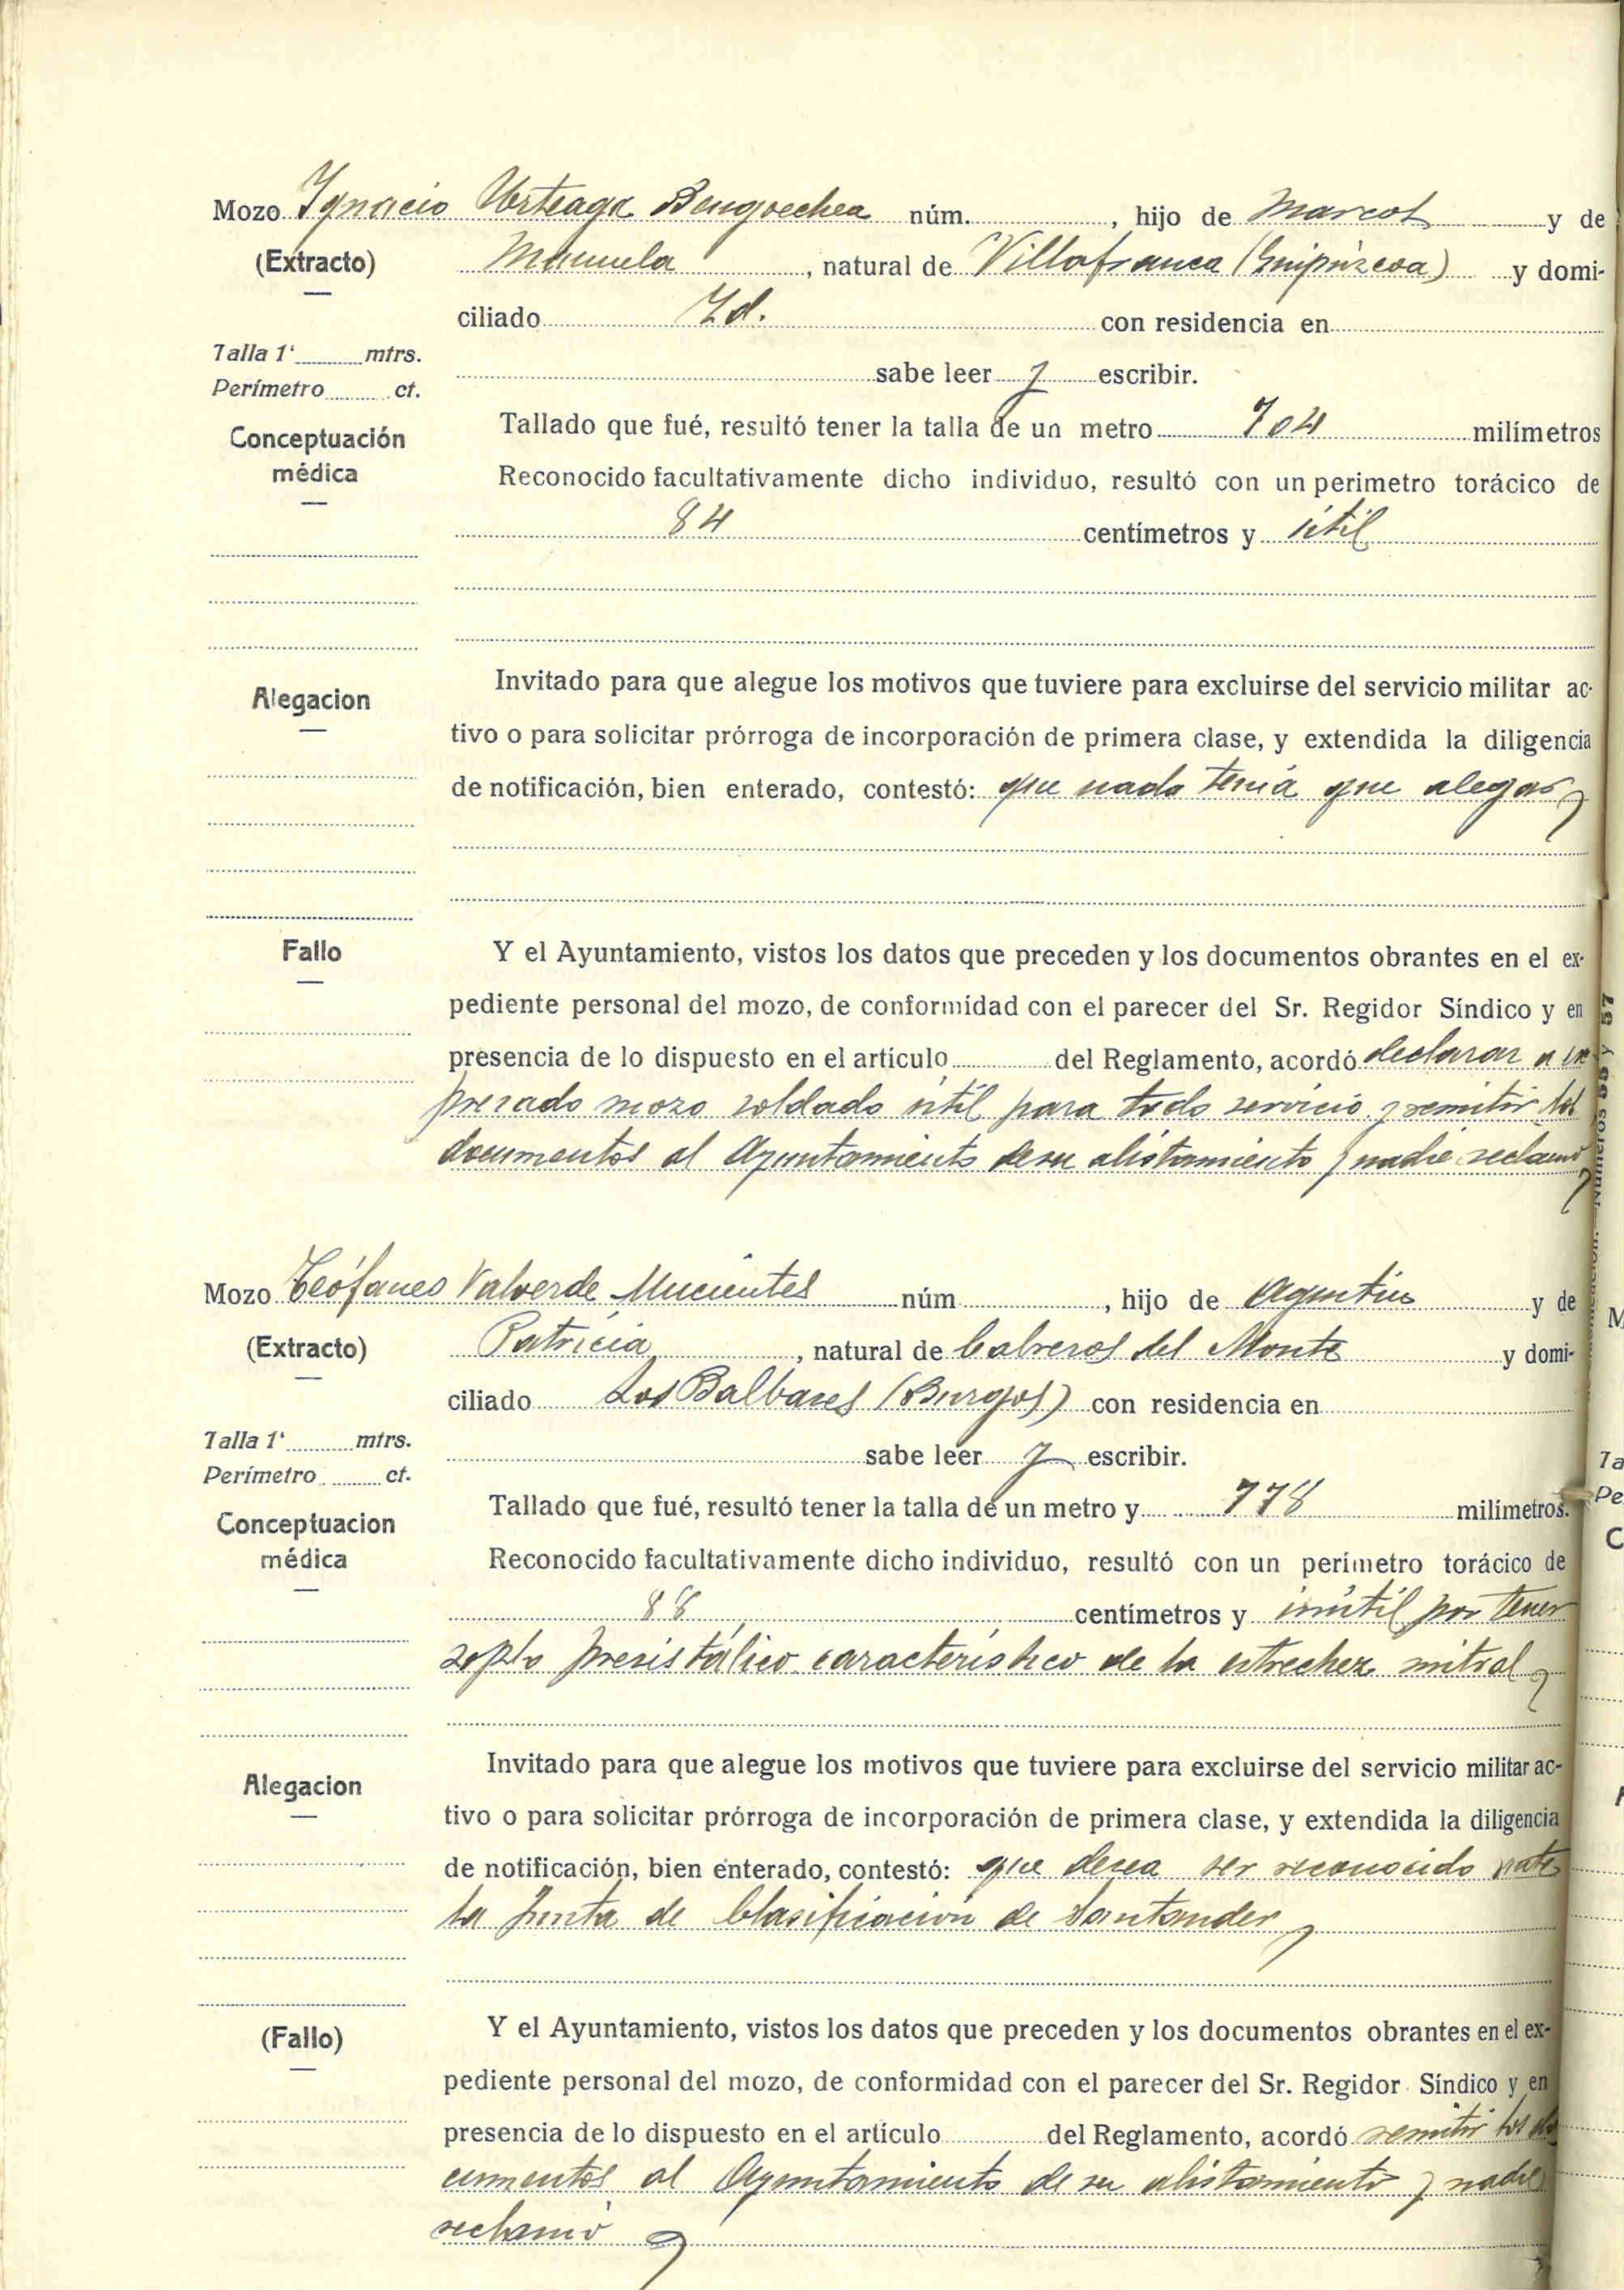 Mozo Ygnacio Urteaga Bengoechea núm. , hijo de Marcos y de
(Extracto) Manuela , natural de Villafranca (Guipúzcoa) y domi-
ciliado Yd. con residencia en
Talla 1' mtrs. sabe leer y escribir.
Perímetro ct.
Conceptuación médica
Tallado que fué, resultó tener la talla de un metro 704 milímetros
Reconocido facultativamente dicho individuo, resultó con un perimetro torácico de
84 centímetros y útil
Alegacion
Invitado para que alegue los motivos que tuviere para excluirse del servicio militar ac-
tivo o para solicitar prórroga de incorporación de primera clase, y extendida la diligencia
de notificación, bien enterado, contestó: que nada tenía que alegar
Fallo
Y el Ayuntamiento, vistos los datos que preceden y los documentos obrantes en el ex-
pediente personal del mozo, de conformidad con el parecer del Sr. Regidor Síndico y en
presencia de lo dispuesto en el artículo del Reglamento, acordó declarar a ex
presado mozo soldado útil para todo servicio y remitir los
documentos al Ayuntamiento de su alistamiento y nadie reclamó
Mozo Teófanes Valverde Mucientes núm , hijo de Agustín y de
(Extracto) Patricia , natural de Cabreros del Monte y domi-
ciliado Los Balbases (Burgos) con residencia en
Talla 1' mtrs. sabe leer y escribir.
Perímetro ct.
Conceptuacion médica
Tallado que fué, resultó tener la talla de un metro y 778 milímetros.
Reconocido facultativamente dicho individuo, resultó con un perímetro torácico de
88 centímetros y inútil por tener
soplo presistálico característico de la estrechez mitral
Alegacion
Invitado para que alegue los motivos que tuviere para excluirse del servicio militar ac-
tivo o para solicitar prórroga de incorporación de primera clase, y extendida la diligencia
de notificación, bien enterado, contestó: que desea ser reconocido ante
la Junta de Clasificación de Santander
(Fallo)
Y el Ayuntamiento, vistos los datos que preceden y los documentos obrantes en el ex-
pediente personal del mozo, de conformidad con el parecer del Sr. Regidor Síndico y en
presencia de lo dispuesto en el artículo del Reglamento, acordó remitir los do
cumentos al Ayuntamiento de su alistamiento y nadie
reclamó